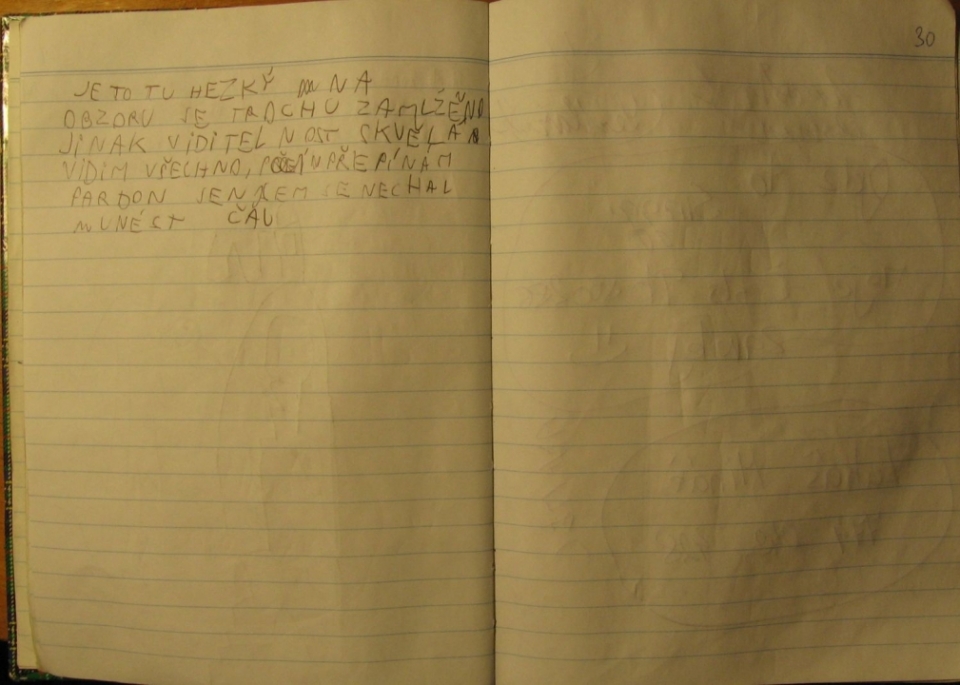 30
JE TO TU HEZKÝ NA
OBZORU JE TROCHU ZAMLŽENO
JINAK VIDITELNOST SKVĚLÁ
VIDIM VŠECHNO, PŘEPÍNÁM
PARDON JEN JSEM SE NECHAL
UNÉST ČAU